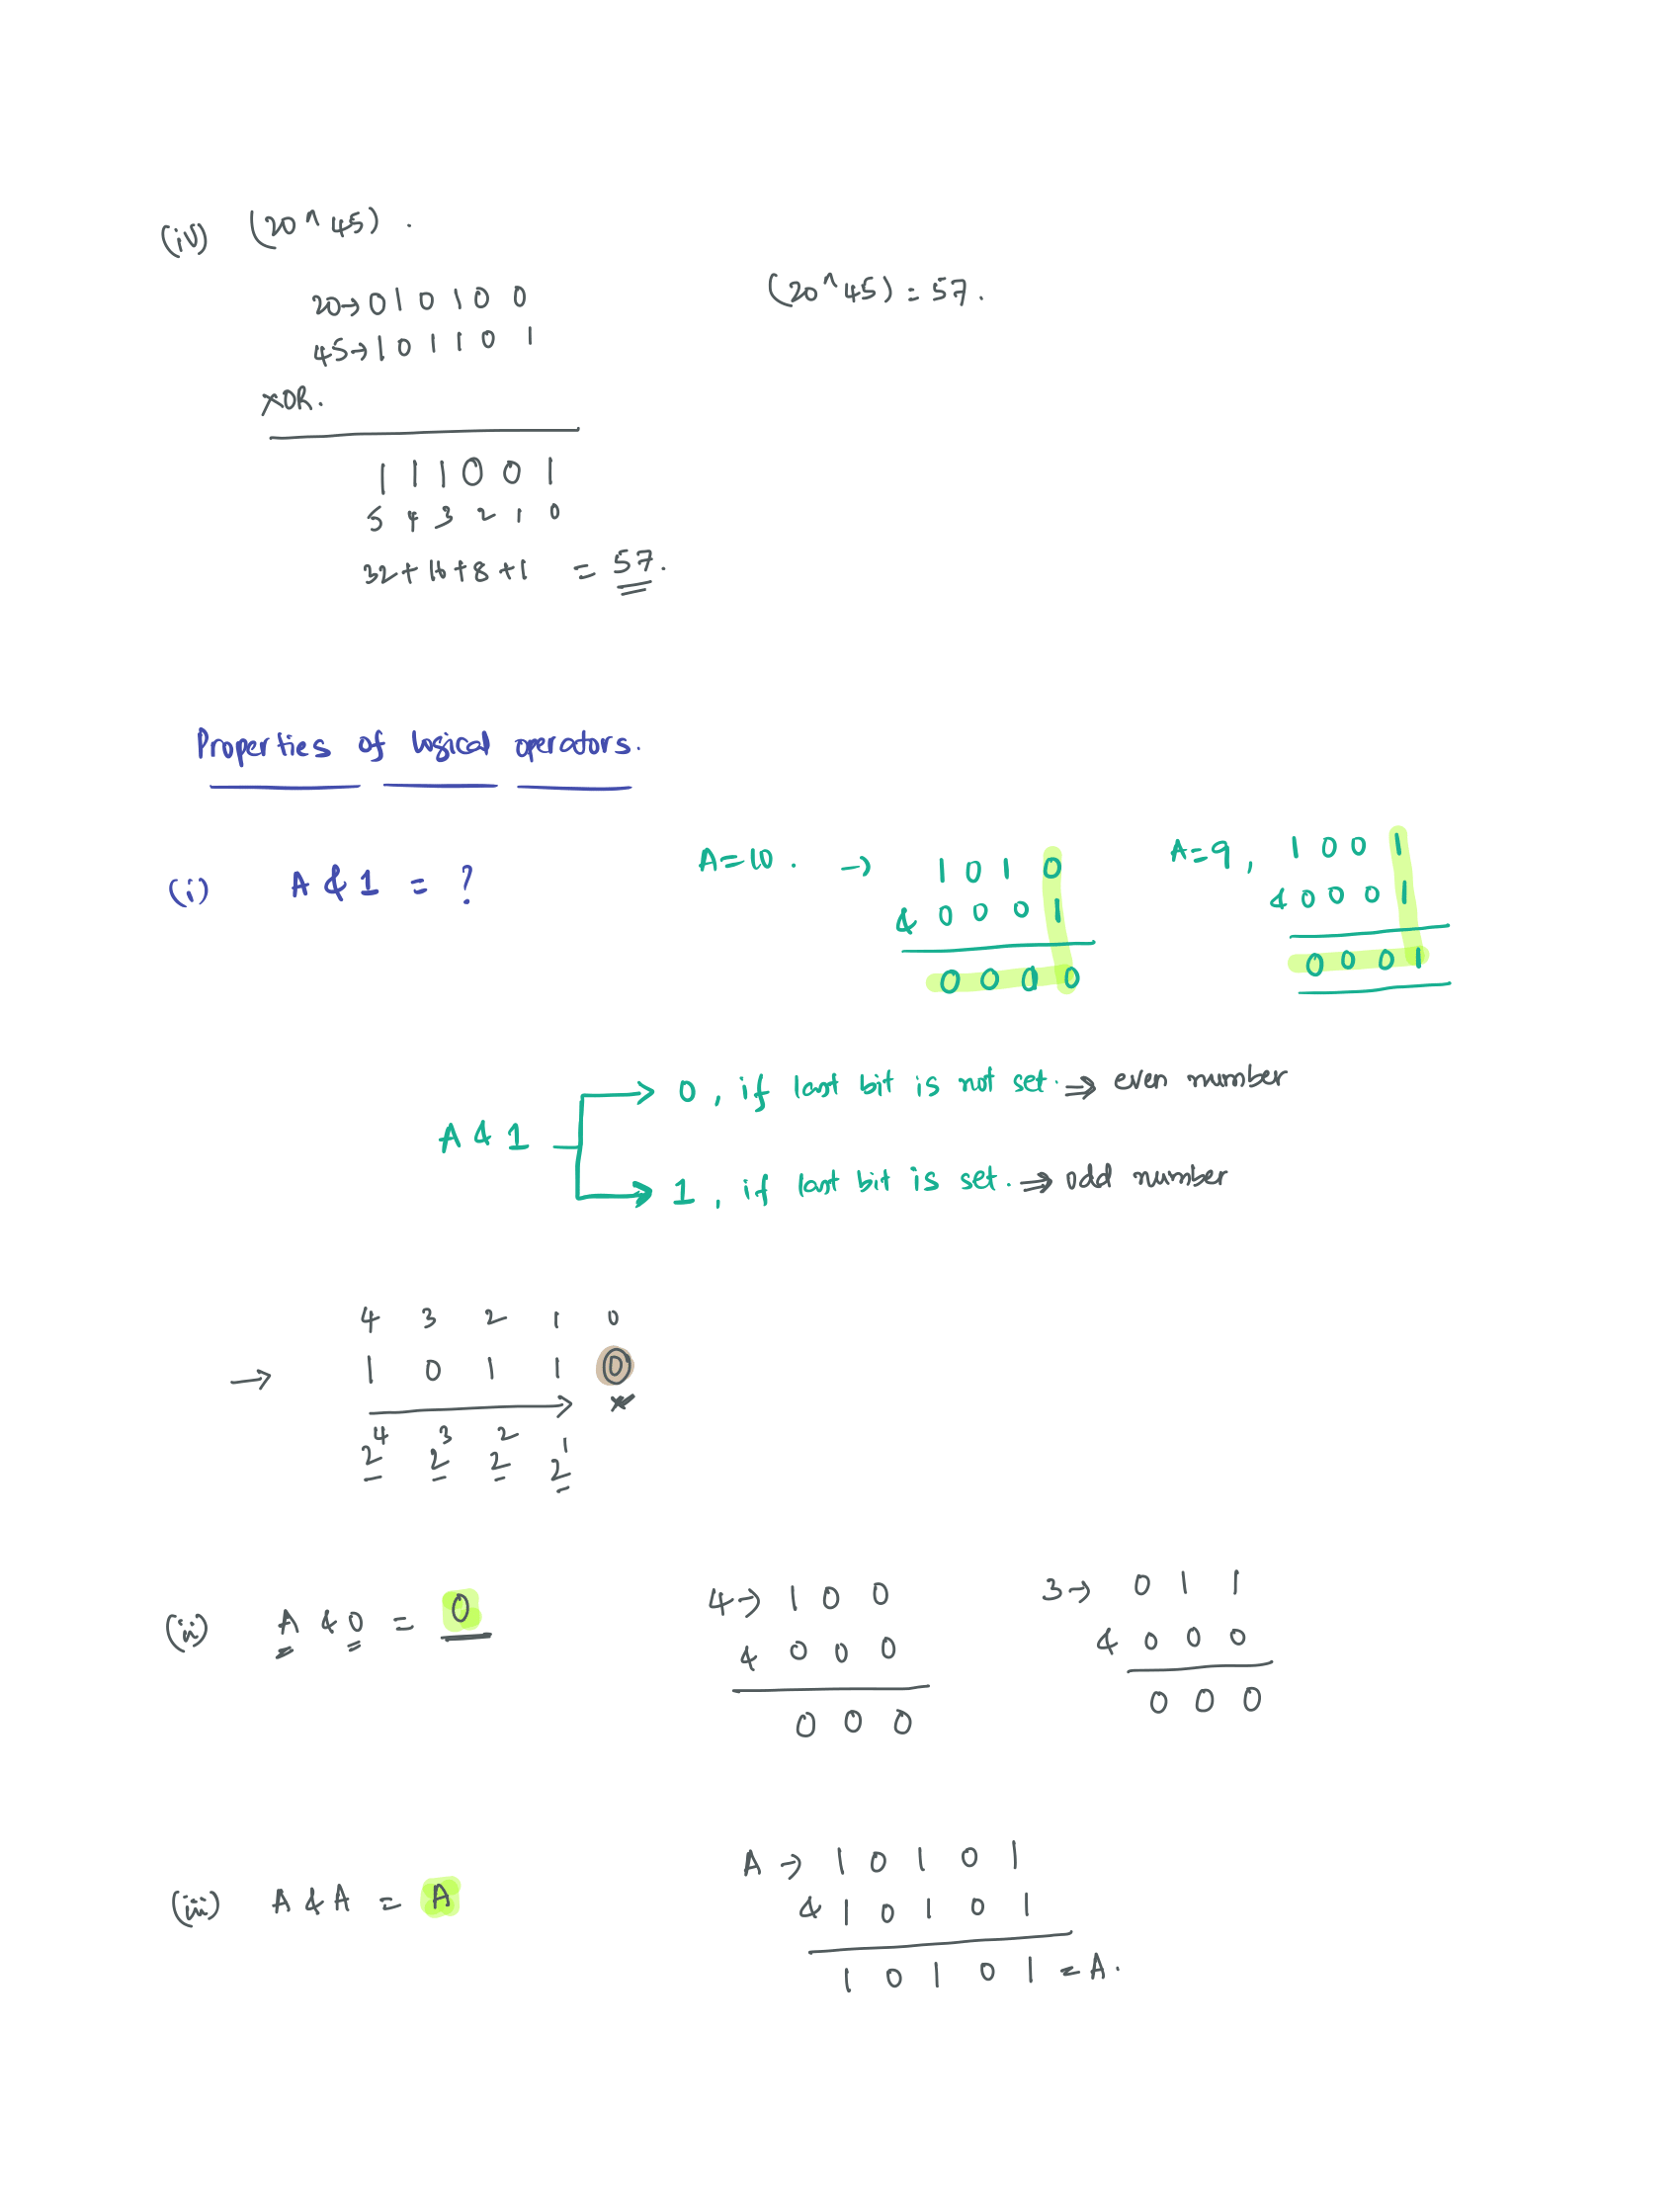 (iv) (20^45).
20→ 0 1 0 1 0 0
45→ 1 0 1 1 0 1
XOR.
1 1 1 0 0 1
5 4 3 2 1 0
32+16+8+1 = 57.
(20^45) = 57.
Properties of logical operators.
(i) A & 1 = ?
A=10. → 1 0 1 0
& 0 0 0 1
0 0 0 0
A=9, 1 0 0 1
& 0 0 0 1
0 0 0 1
A & 1
0, if last bit is not set. ⇒ even number
1, if last bit is set. ⇒ odd number
4 3 2 1 0
→ 1 0 1 1 0
2⁴ 2³ 2² 2¹
(ii) A & 0 = 0
4→ 1 0 0
& 0 0 0
0 0 0
3→ 0 1 1
& 0 0 0
0 0 0
(iii) A & A = A
A → 1 0 1 0 1
& 1 0 1 0 1
1 0 1 0 1 = A.